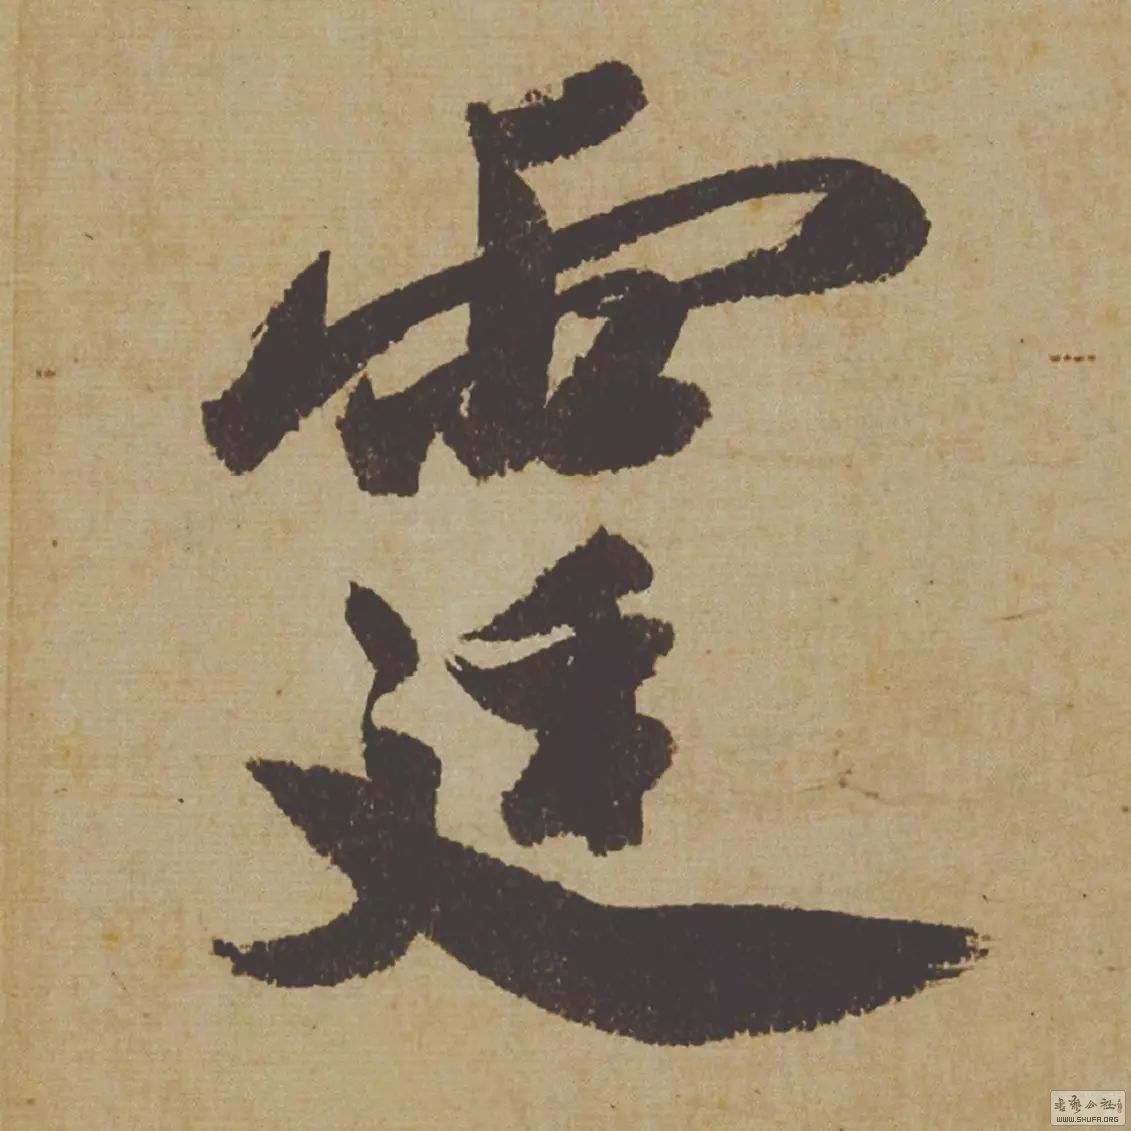 霆
書藝公社
WWW.SHUFA.ORG